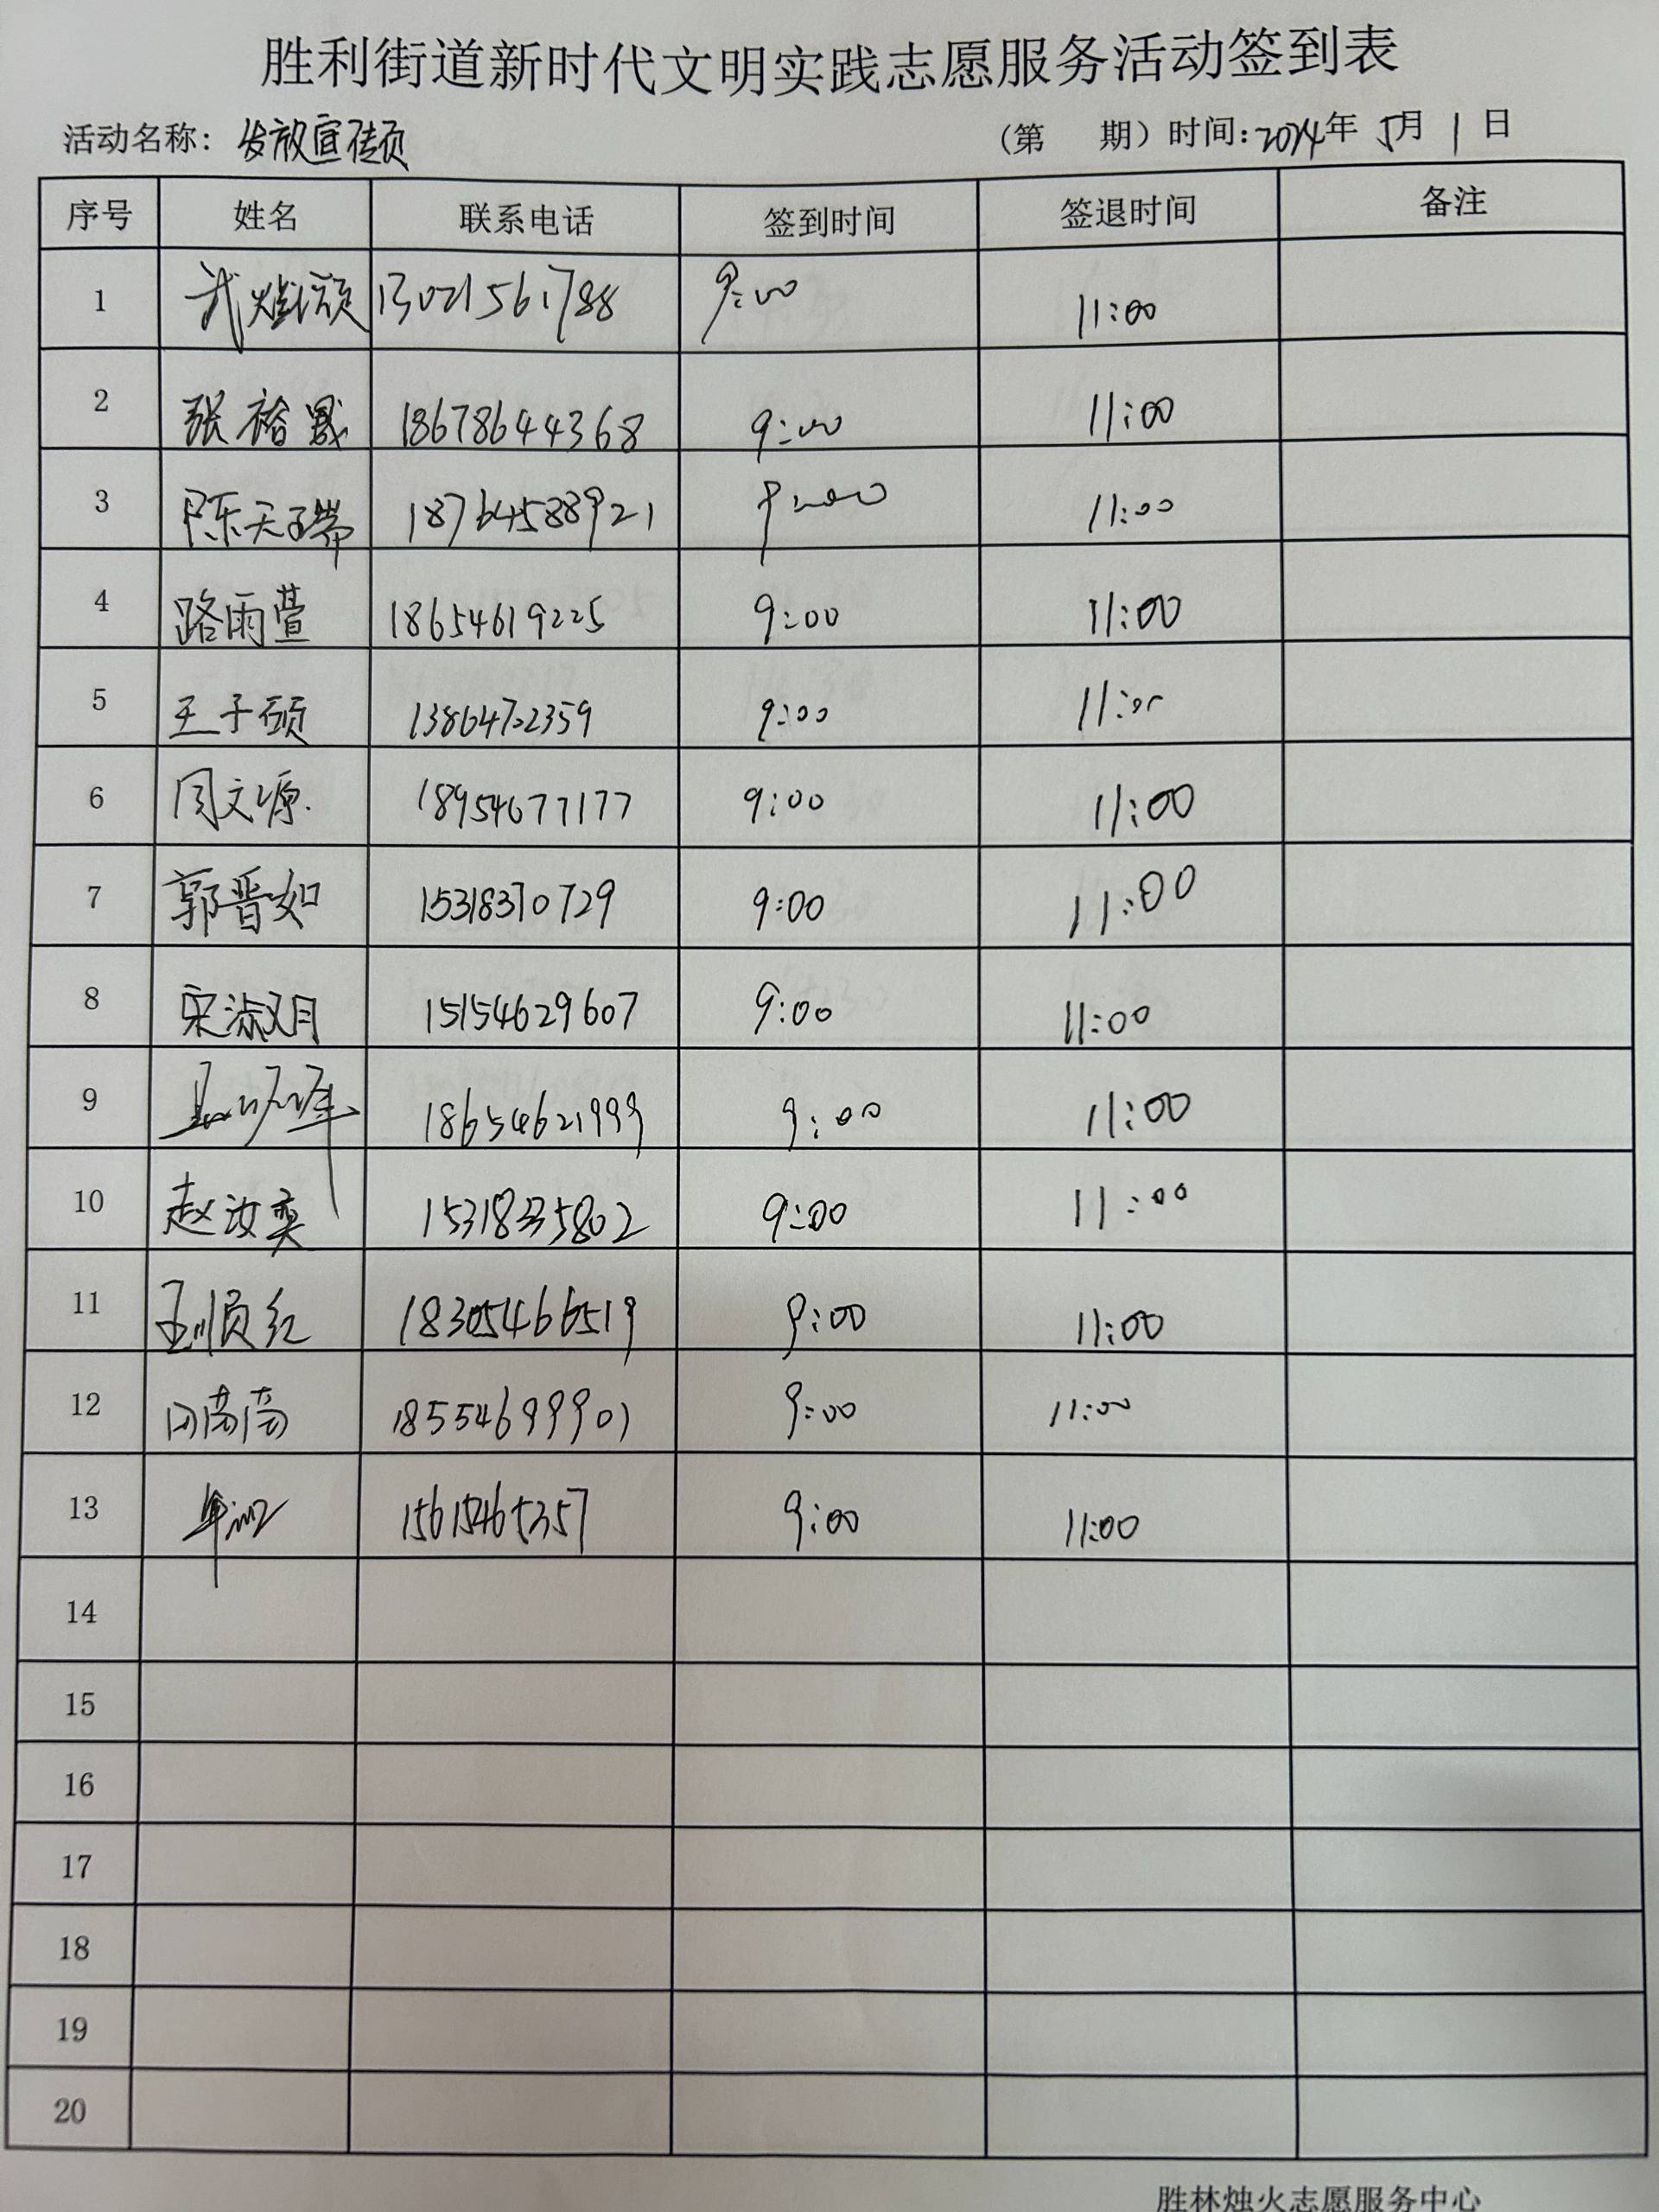 胜利街道新时代文明实践志愿服务活动签到表
活动名称：发放宣传页 （第 期）时间：2024年 5月 1 日
序号 姓名 联系电话 签到时间 签退时间 备注
1 武 13021561788 9:00 11:00
2 张裕晟 18678644368 9:00 11:00
3 陈天瑞 18764588921 9:00 11:00
4 路雨萱 18654619225 9:00 11:00
5 王子硕 13864722359 9:00 11:00
6 周文源 18954677177 9:00 11:00
7 郭晋如 15318370729 9:00 11:00
8 宋淑月 15154629607 9:00 11:00
9 18654621999 9:00 11:00
10 赵汝奕 15318335802 9:00 11:00
11 王顺红 18305466519 9:00 11:00
12 田萳萳 18554699901 9:00 11:00
13 15615465357 9:00 11:00
14
15
16
17
18
19
20
胜林烛火志愿服务中心